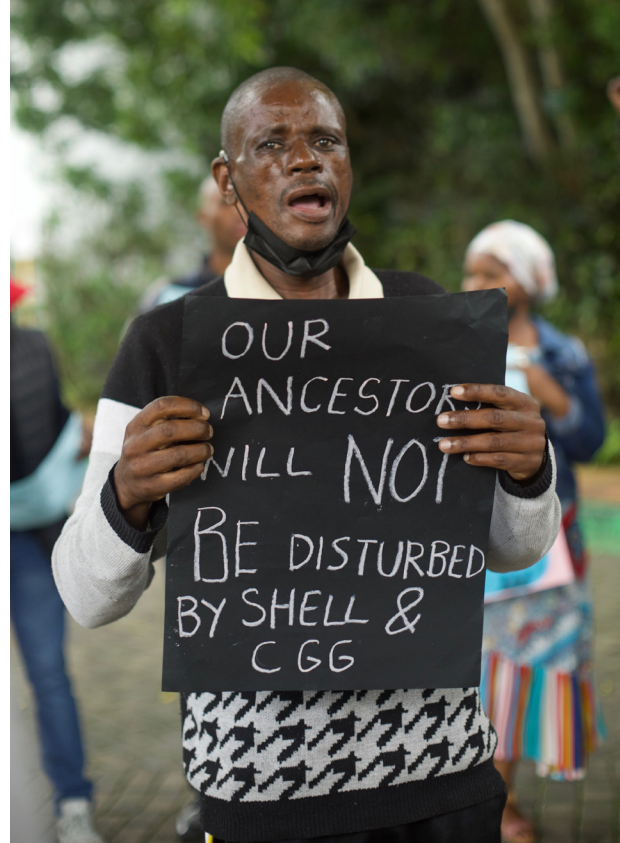 OUR
ANCESTORS
WILL NOT
BE DISTURBED
BY SHELL &
CGG